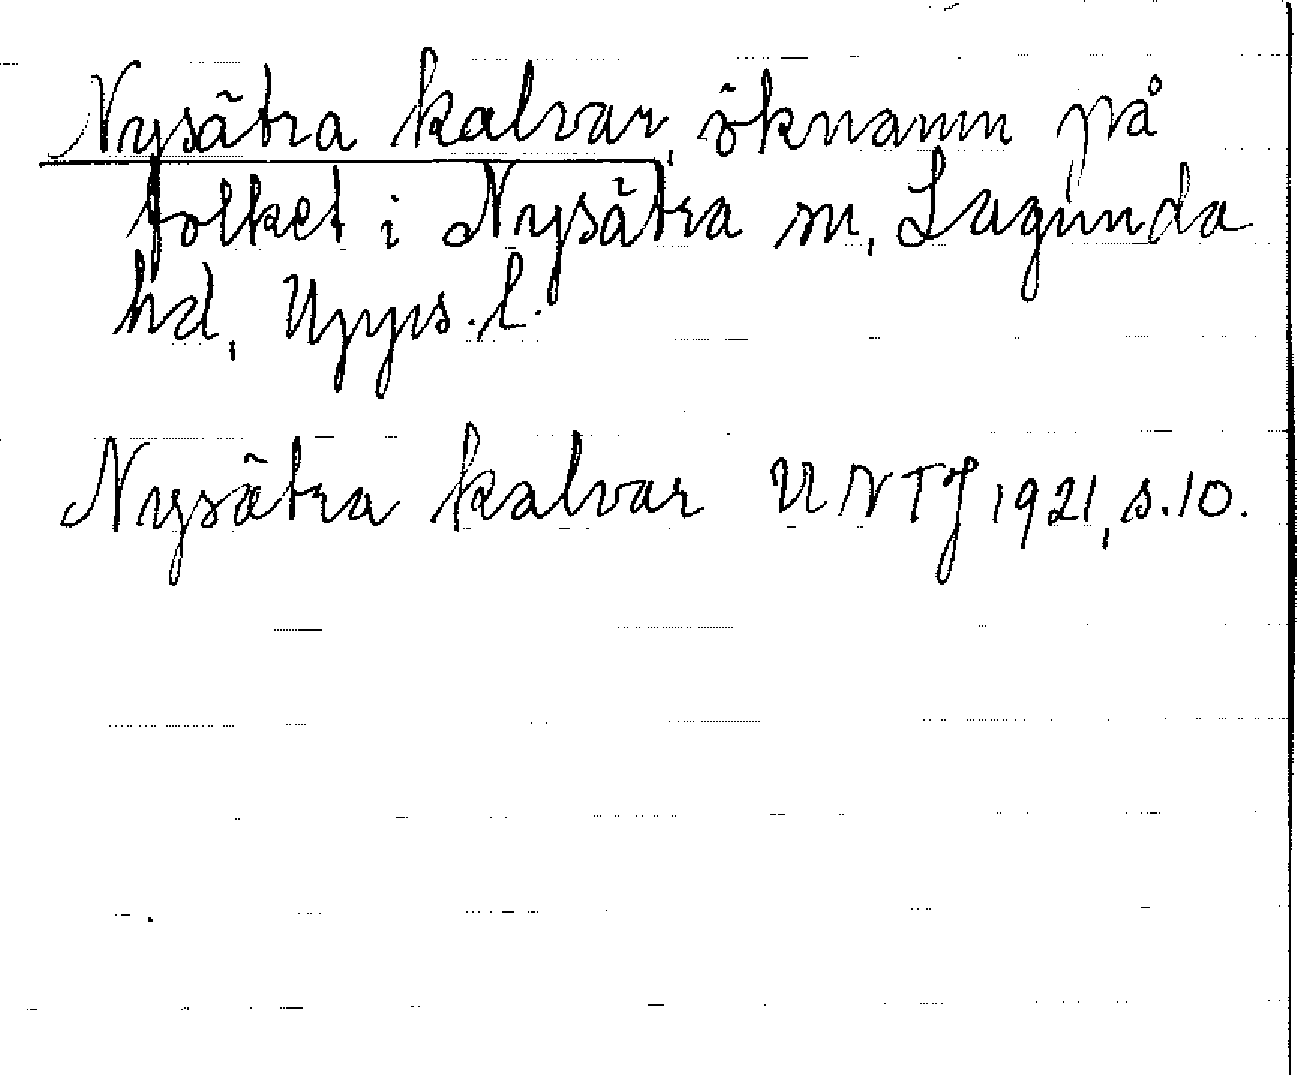 Nysätra kalvar, öknamn på
folket i Nysätra sn, Lagunda
hd, Upps. l.
Nysätra kalvar UNTJ 1921, s. 10.